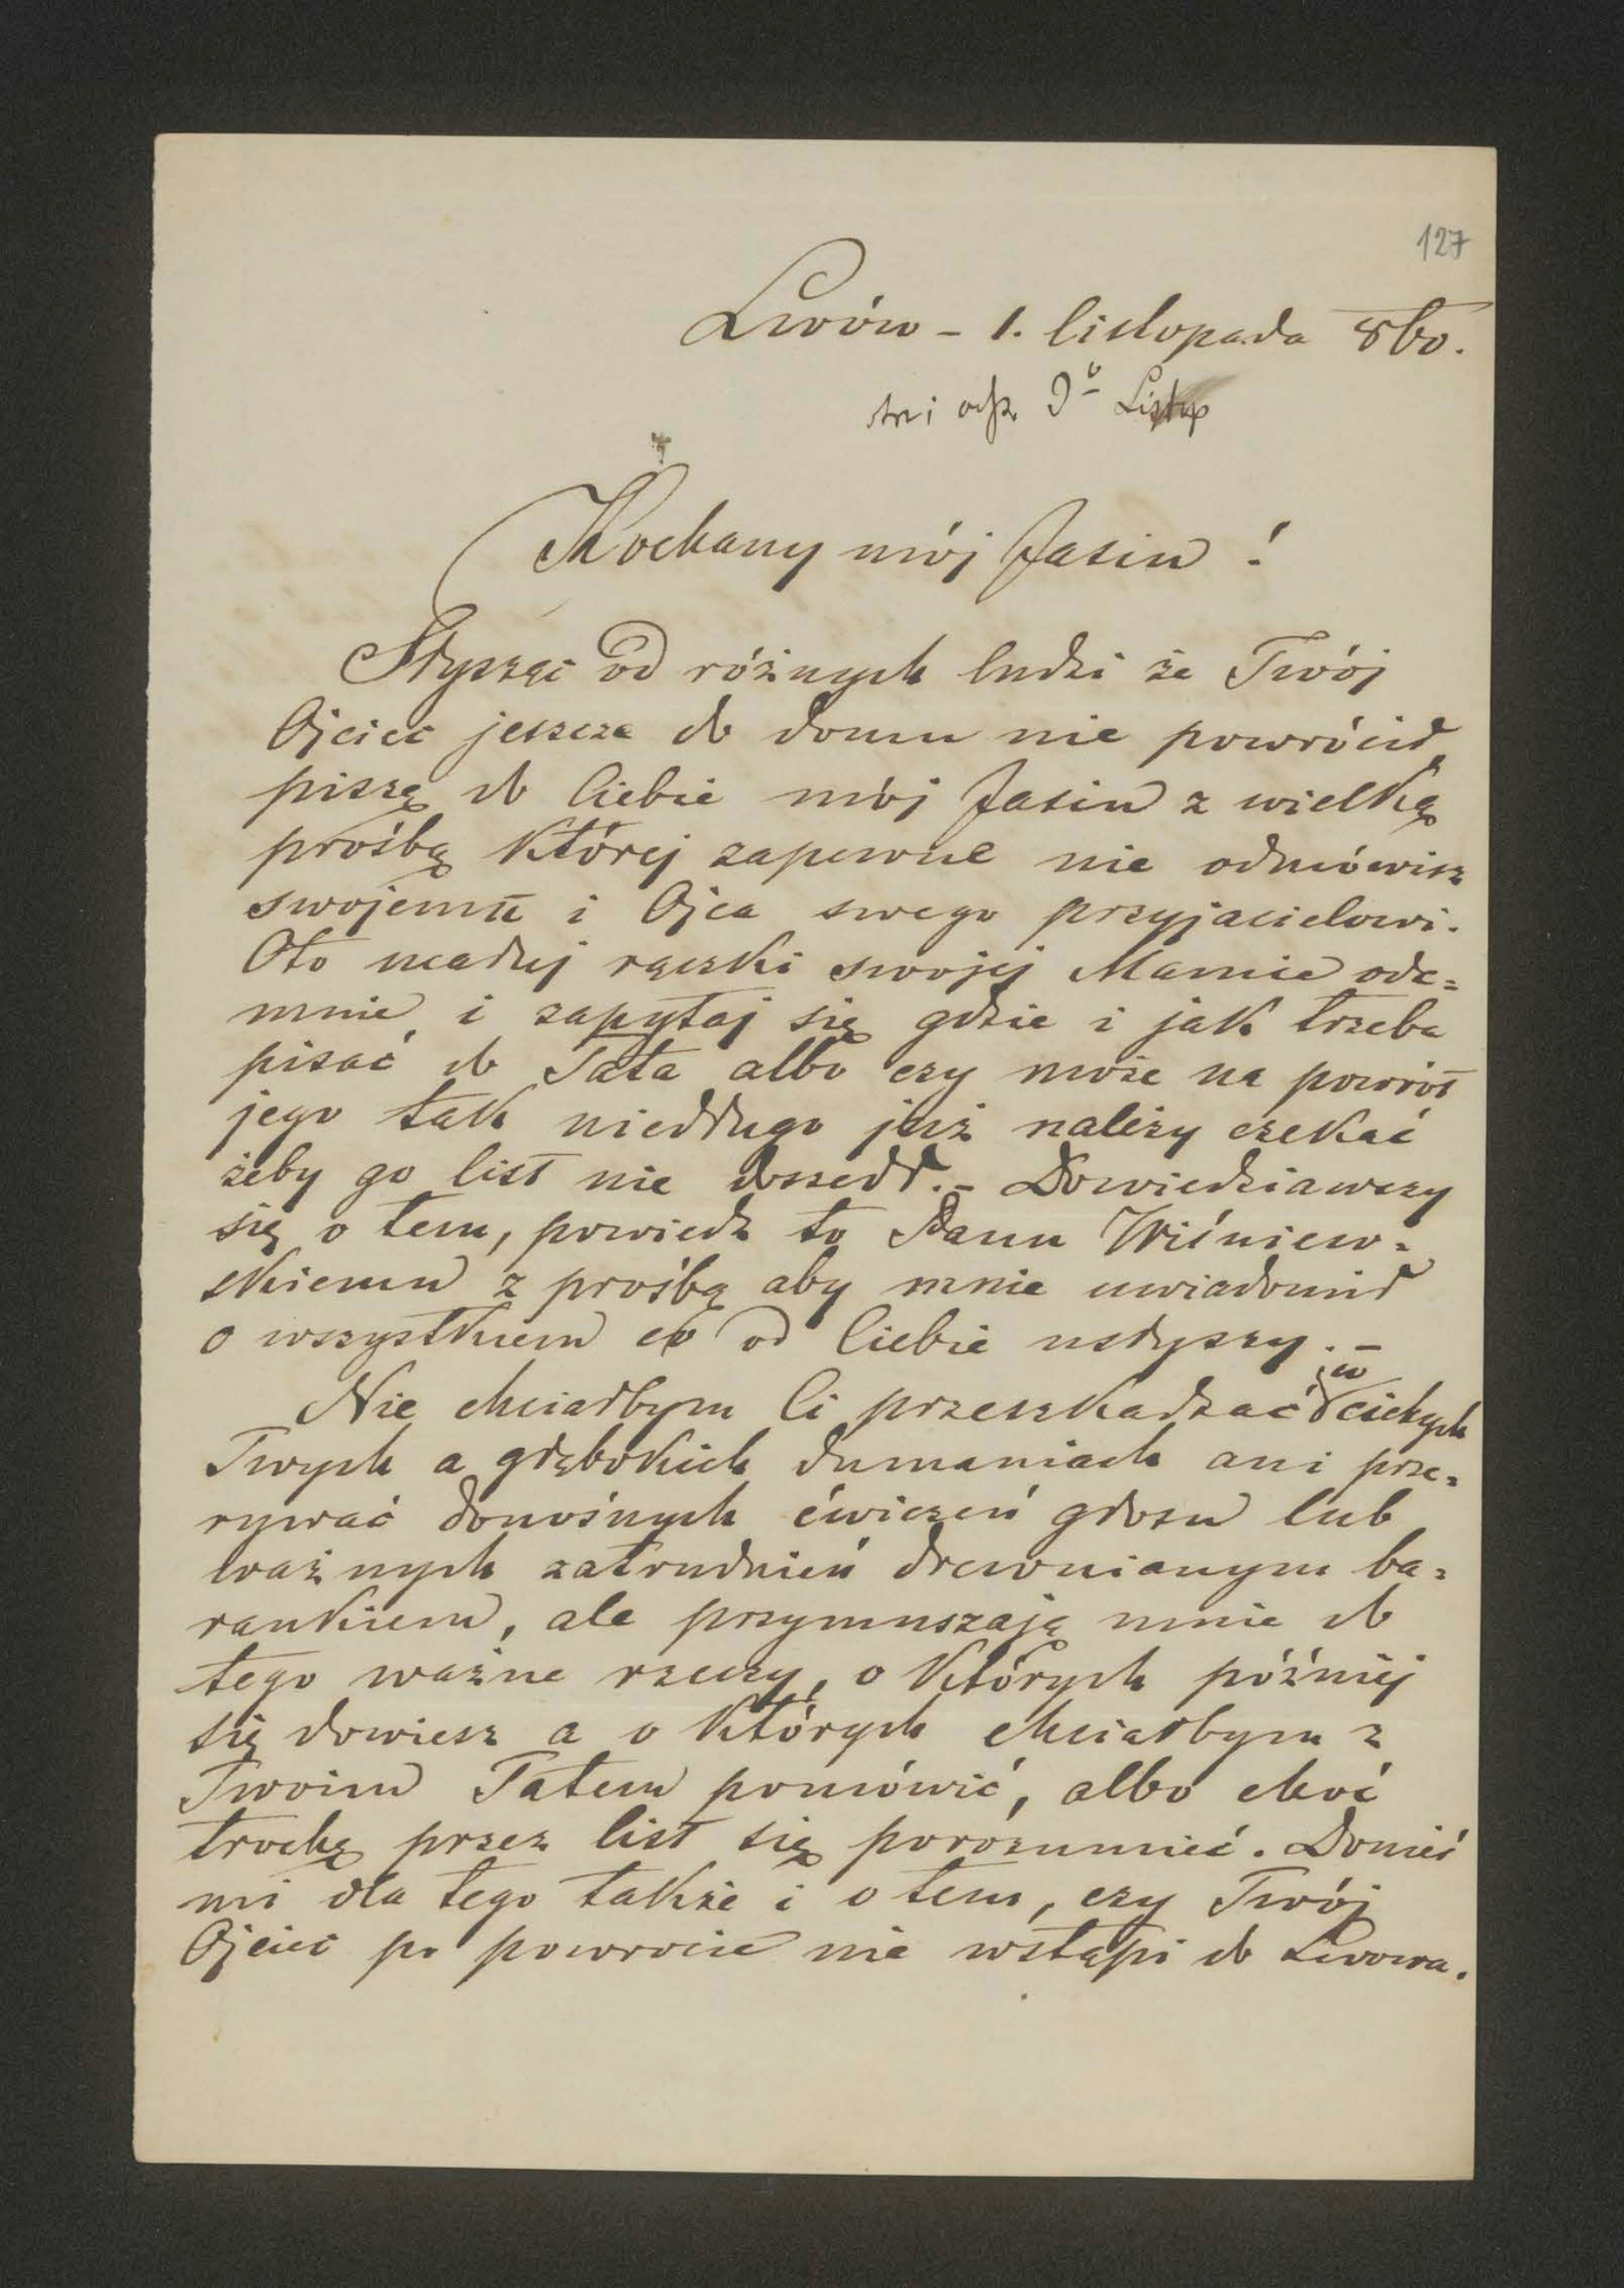 127
Lwów – 1. listopada 860.
Listop
Kochany mój Jasiu !
Słysząc od różnych ludzi że Twój
Ojciec jeszcze do domu nie powrócił,
piszę do Ciebie mój Jasiu z wielką
prośbą której zapewne nie odmówisz
swojemu i Ojca swego przyjacielowi.
Oto ucałuj rączki swojej Mamie ode=
mnie, i zapytaj się gdzie i jak trzeba
pisać do Tata albo czy może na powrót
jego tak niedługo już należy czekać
żeby go list nie doszedł. – Dowiedziawszy
się o tem, powiedz to Panu Wiśniew=
skiemu z prośbą aby mnie uwiadomił
o wszystkiem co od Ciebie usłyszy. –
Nie chciałbym Ci przeszkadzać w cichych
Twych a głębokich dumaniach ani prze=
rywać donośnych ćwiczeń głosu lub
ważnych zatrudnień drewnianym ba=
rankiem, ale przymuszają mnie do
tego ważne rzeczy, o których później
się dowiesz a o których chciałbym z
Twoim Tatem pomówić, albo choć
trochę przez list się porozumieć. Donieś
mi dla tego także i o tem, czy Twój
Ojciec po powrocie nie wstąpi do Lwowa.